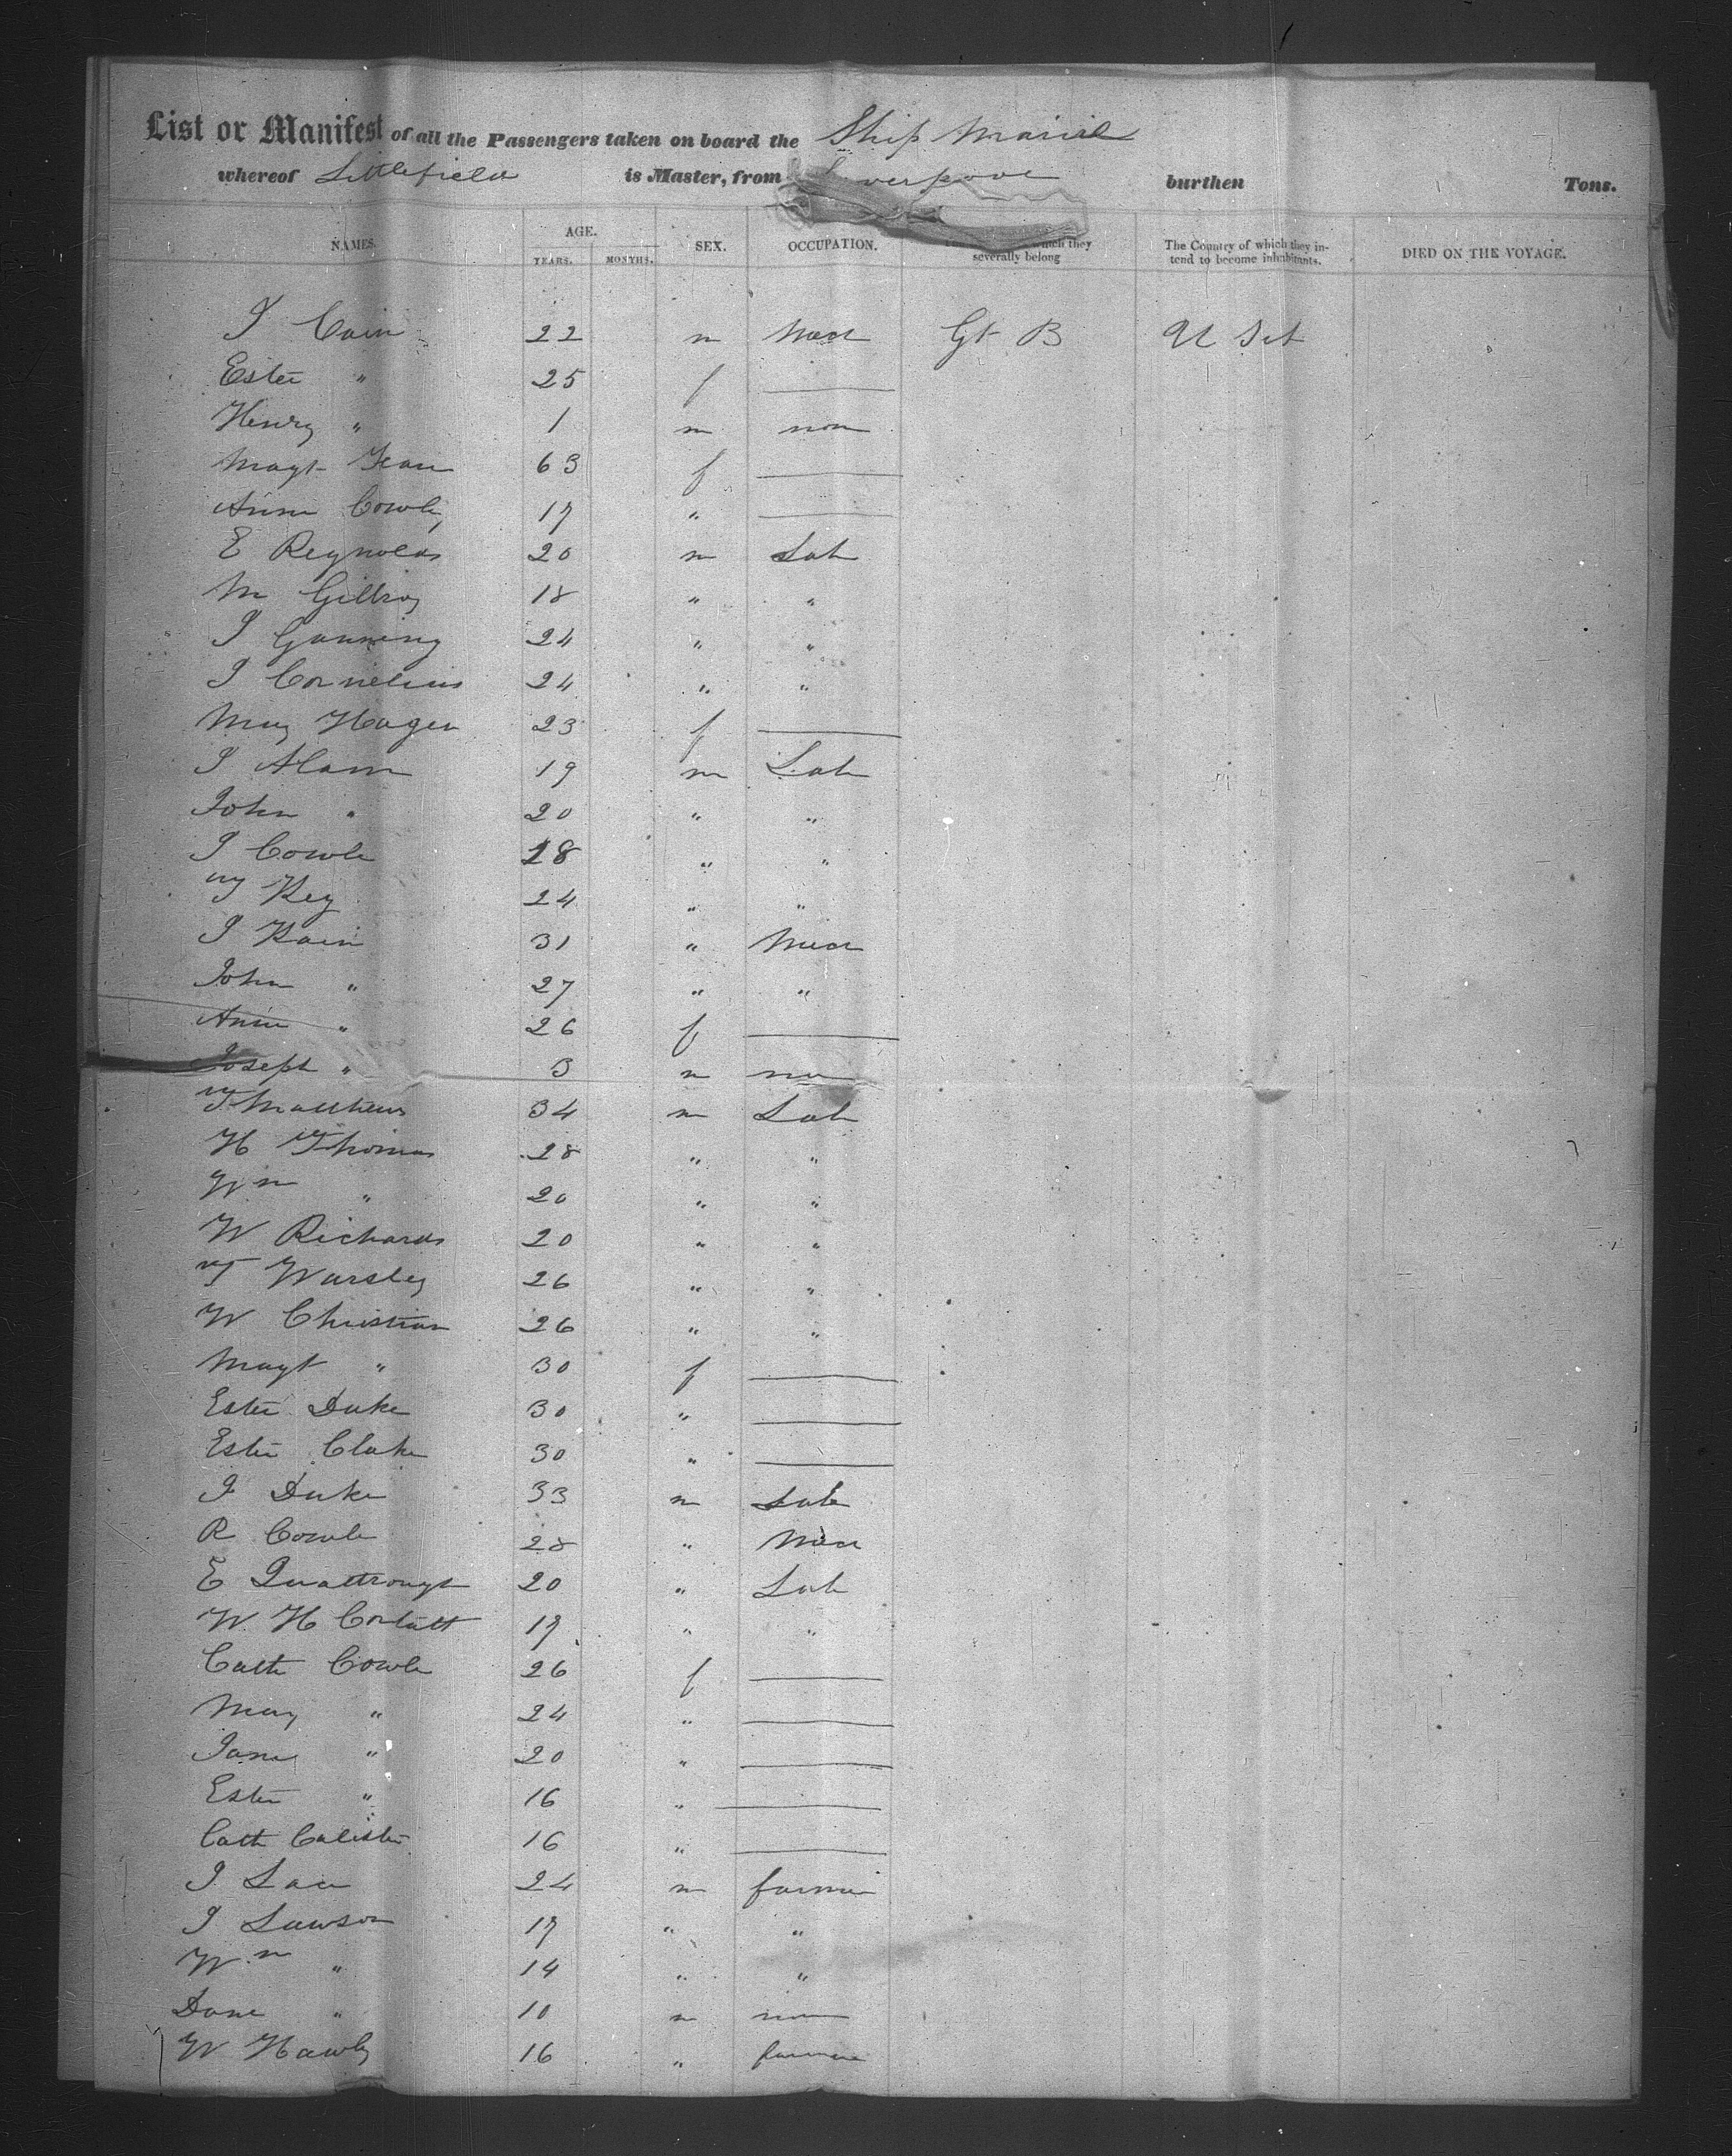 List or Manifest of all the Passengers taken on board the Ship
whereof Littlefield is Master, from burthen Tons.
NAMES. AGE. YEARS. MONTHS. SEX. OCCUPATION. which they severally belong The Country of which they intend to become inhabitants. DIED ON THE VOYAGE.
J Cain 22 m Mec Gt B U Sts
Ester " 25 f
Henry " 1 m non
Magt 63 f
Anne Cowley 17 "
E Reynolds 20 m Lab
M Gillroy 18 " "
J Ganning 24 " "
J Cornelius 24 " "
Mary Hagen 23 f
J Alam 19 m Lab
John " 20 " "
J Cowle 18 " "
T Key 24 " "
J Kain 31 " Mec
John " 27 " "
Anne " 26 f
Joseph " 3 m non
T Matthews 34 m Lab
H Thomas 28 " "
Wm " 20 " "
W Richards 20 " "
T Warsley 26 " "
W Christian 26 " "
Magt " 30 f
Ester Duke 30 "
Ester Clake 30 "
J Duke 33 m Lab
R Cowle 28 " Mec
E 20 " Lab
W. H Corlett 17 " "
Cath Cowle 26 f
Mary " 24 "
Jane " 20 "
Ester " 16 "
Cath Calister 16 "
J 24 m farmer
J Lawson 17 " "
Wm " 14 " "
Dane " 10 m non
W Hawley 16 " farmer